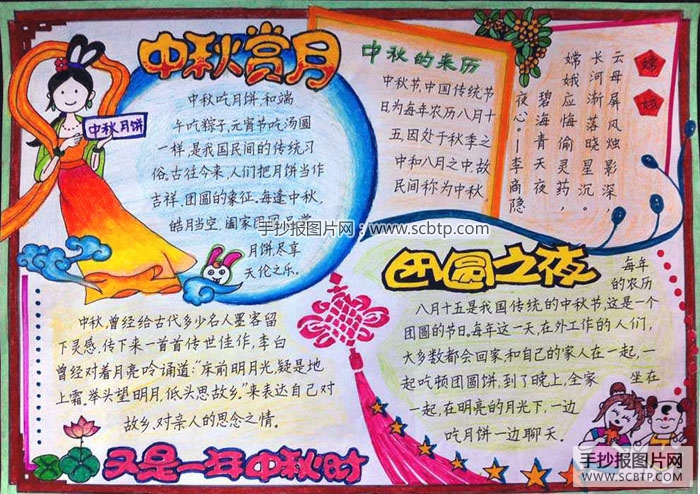 中秋赏月
中秋月饼
中秋吃月饼,和端
午吃粽子,元宵节吃汤圆
一样,是我国民间的传统习
俗,古往今来,人们把月饼当作
吉祥,团圆的象征,每逢中秋,
皓月当空,阖家团圆,品尝
月饼尽享
天伦之乐。
中秋的来历
中秋节,中国传统节
日为每年农历八月十
五,因处于秋季之
中和八月之中,故
民间称为中秋
嫦娥
云母屏风烛影深,
长河渐落晓星沉。
嫦娥应悔偷灵药,
碧海青天夜
夜心。—李商隐
手抄报图片网:www.scbtp.com
中秋,曾经给古代多少名人墨客留
下灵感,传下来一首首传世佳作,李白
曾经对着月亮吟诵道:"床前明月光,疑是地
上霜。举头望明月,低头思故乡。"来表达自己对
故乡,对亲人的思念之情。
团圆之夜
每年
的农历
八月十五是我国传统的中秋节,这是一个
团圆的节日,每年这一天,在外工作的人们,
大多数都会回家和自己的家人在一起,一
起吃顿团圆饼,到了晚上,全家 坐在
一起,在明亮的月光下,一边
吃月饼一边聊天。
又是一年中秋时
手抄报图片网
WWW.SCBTP.COM